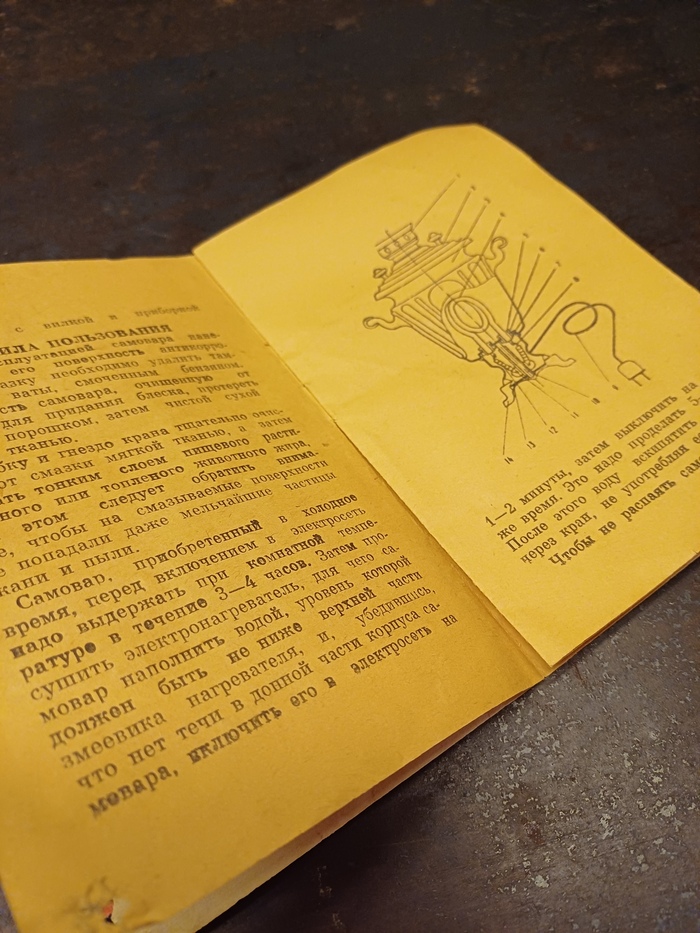 с вилкой и приборной
ИЛА ПОЛЬЗОВАНИЯ
сплуатацией самовара нане-
его поверхность антикорро-
азку необходимо удалить там-
ваты, смоченным бензином.
сть самовара, очищенную от
для придания блеска, протереть
порошком, затем чистой сухой
тканью.
бку и гнездо крана тщательно очис-
от смазки мягкой тканью, а затем
ать тонким слоем пищевого расти-
ного или топленого животного жира,
этом следует обратить внима-
е, чтобы на смазываемые поверхности
е попадали даже мельчайшие частицы
кани и пыли.
Самовар, приобретенный в холодное
время, перед включением в электросеть
надо выдержать при комнатной темпе-
ратуре в течение 3—4 часов. Затем про-
сушить электронагреватель, для чего са-
мовар наполнить водой, уровень которой
должен быть не ниже верхней части
змеевика нагревателя, и, убедившись,
что нет течи в донной части корпуса са-
мовара, включить его в электросеть на
14 13 12 11
1—2 минуты, затем выключить на
же время. Это надо проделать 5-
После этого воду вскипятить
через кран, не употребляя
Чтобы не распаять сам